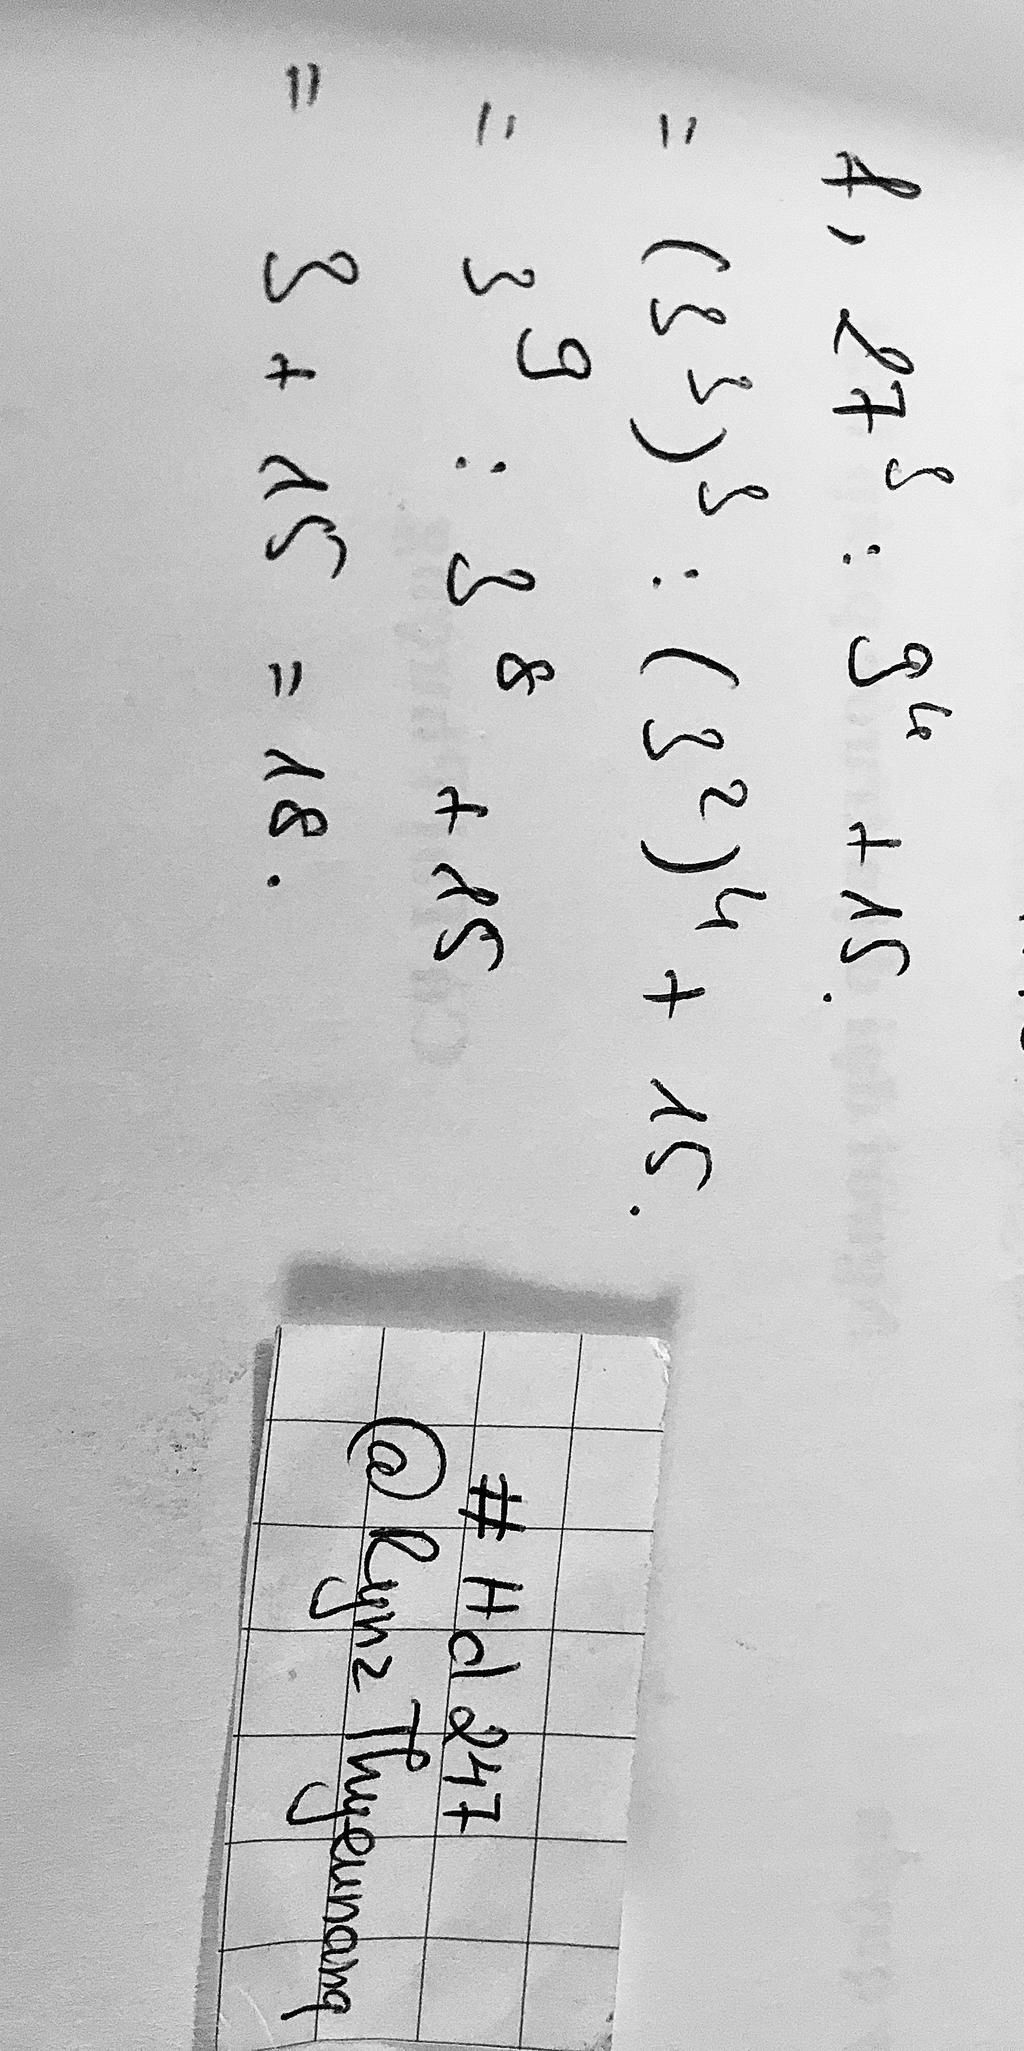 f, 27³ : 9⁴ + 15.
= (3³)³ : (3²)⁴ + 15.
= 3⁹ : 3⁸ + 15
= 3 + 15 = 18.
# Hd 247
@ Rynz Thyeunanq